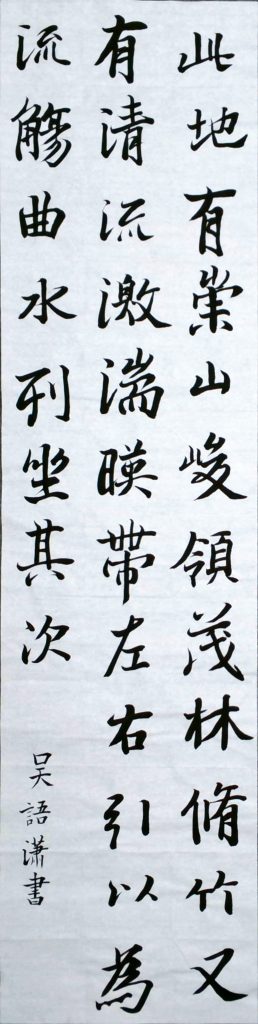 此地有崇山峻領茂林脩竹又
有清流激湍暎帶左右引以為
流觴曲水列坐其次
吴語潇書